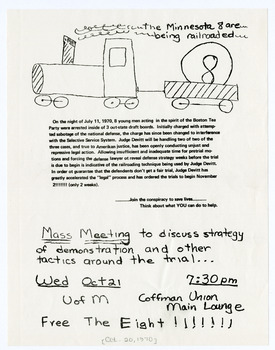 ...the Minnesota 8 are...
being railroaded...
8
On the night of July 11, 1970, 8 young men acting in the spirit of the Boston Tea
Party were arrested inside of 3 out-state draft boards. Initially charged with attemp-
ted sabotage of the national defense, the charge has since been changed to interference
with the Selective Service System. Judge Devitt will be handling two of the
three cases, and true to Amerikan justice, has been openly conducting unjust and
repressive legal action. Allowing insufficient and inadequate time for pretrial mo-
tions and forcing the defense lawyer to reveal defense strategy weeks before the trial
is due to begin is indicative of the railroading technique being used by Judge Devitt.
In order ot guarantee that the defendents don't get a fair trial, Judge Devitt has
greatly accelerated the "legal" process and has ordered the trials to begin November
2!!!!!!! (only 2 weeks).
Join the conspiracy to save lives......
Think about what YOU can do to help.
Mass Meeting to discuss strategy
of demonstration and other
tactics around the trial...
Wed Oct 21 7:30 pm
U of M Coffman Union
Main Lounge
Free The Eight !!!!!!!
[Oct. 20, 1970]